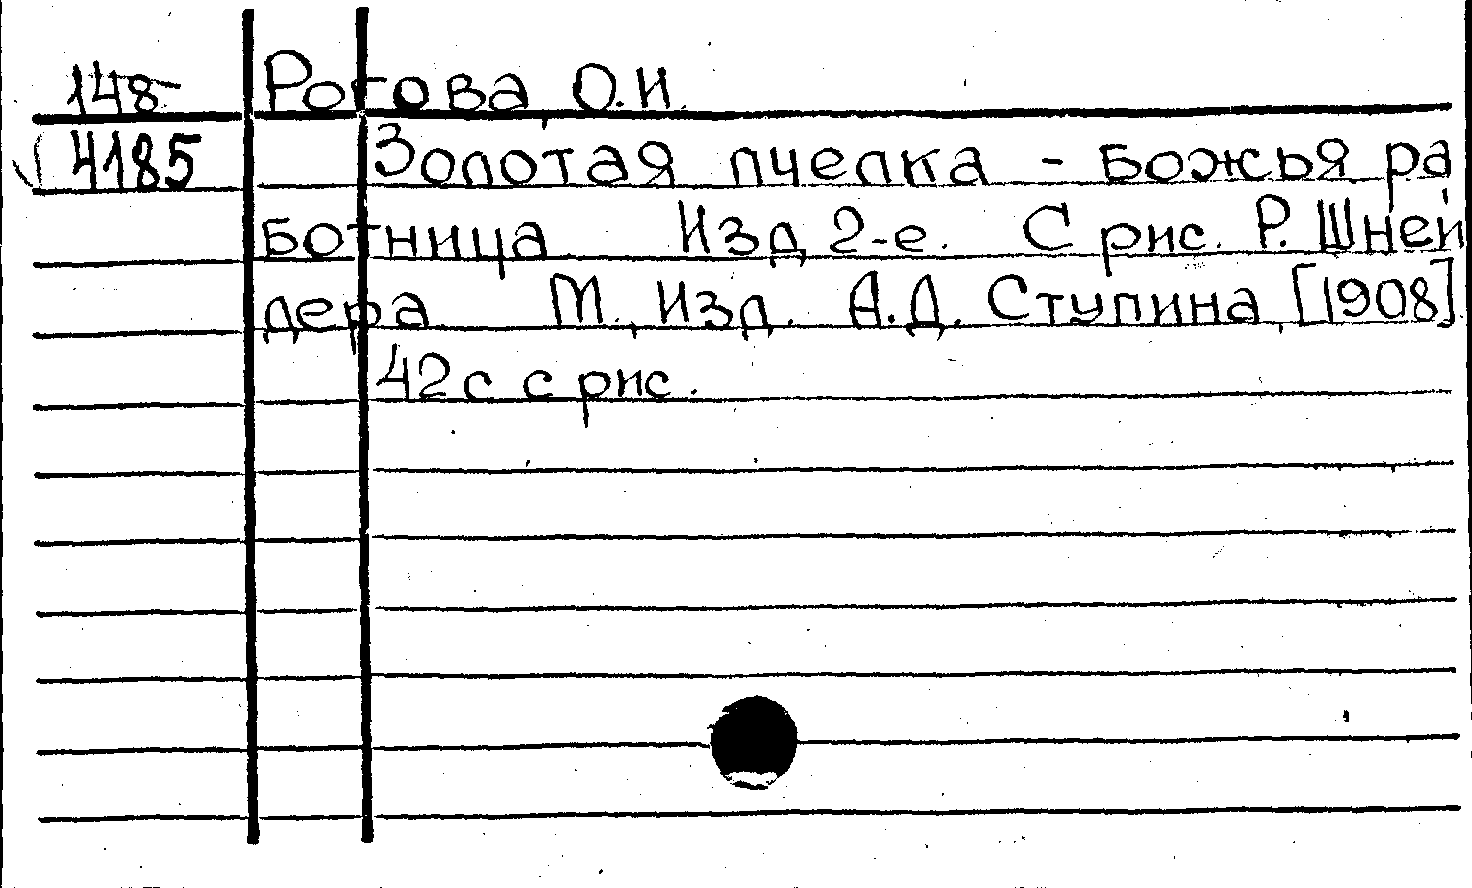 148- Рогова О.И.
4185 Золотая пчелка - божья ра
ботница Изд 2-е. С рис. Р. Шней
дера М., Изд. А.Д. Ступина, [1908]
42 с с рис.